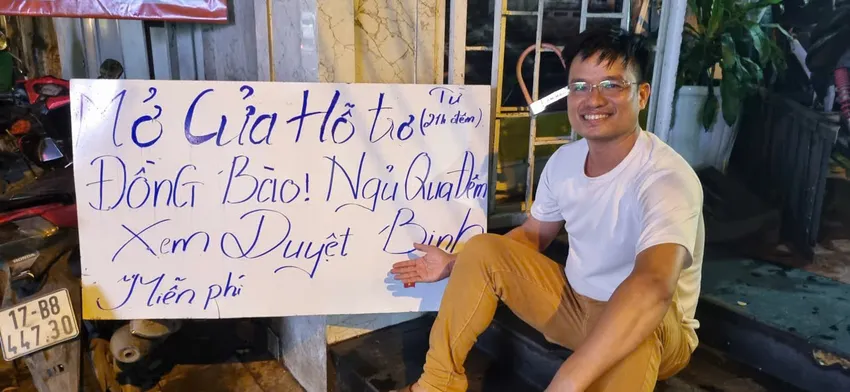 Mở Cửa Hỗ trợ Từ (21h đêm).
ĐỒNG Bào! Ngủ Qua Đêm
Xem Duyệt Binh
Miễn phí
17-B8
447.30